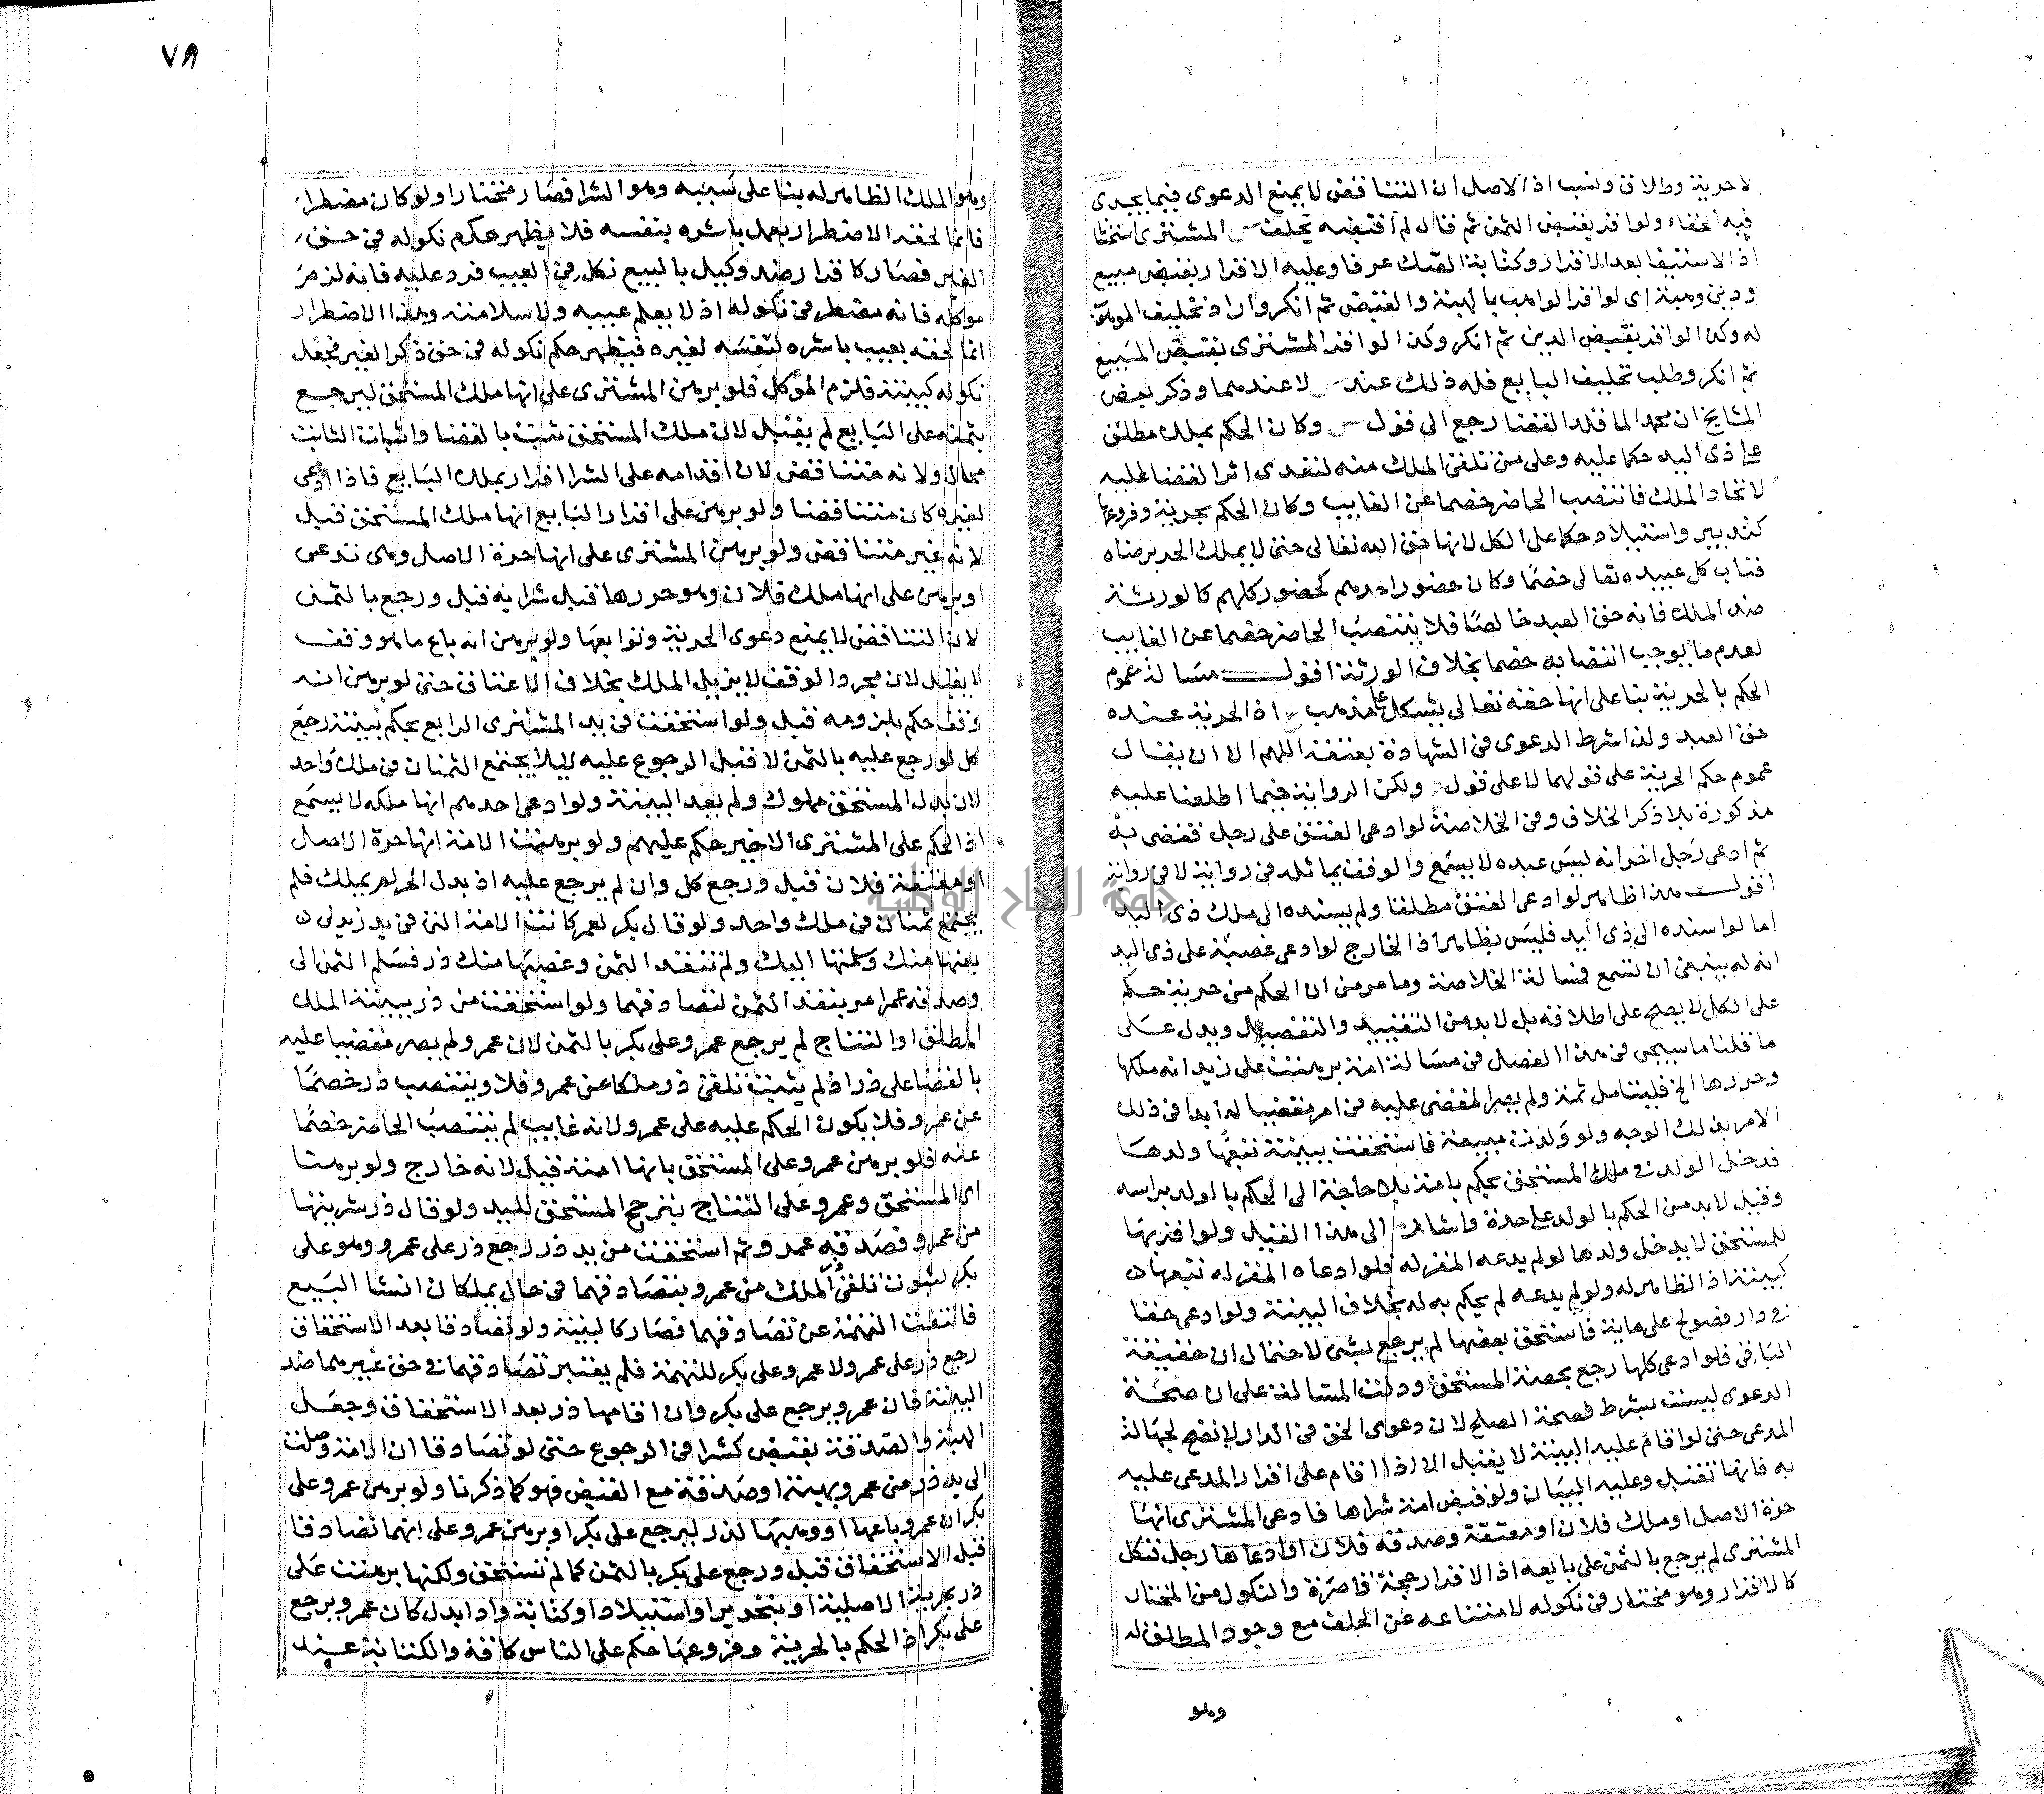 لا حرية وطلاق ونسب اذ الاصل ان التناقض لا يمنع الدعوى فيما يجرى
فيه الخفاء ولو اقر بقبض الثمن ثم قال لم اقبضه يحلف س المشترى استحسانا
اذ الاستيفا بعد الاقرار وكتابة الصك عرفا وعليه الاقرار بقبض مبيع
ودين وهبة اى لو اقر الواهب بالهبة والقبض ثم انكر واراد تحليف الموهوب
له وكذا لو اقر بقبض الدين ثم انكر وكذا لو اقر المشترى بقبض المبيع
ثم انكر وطلب تحليف البايع فله ذلك عند س لا عندهما وذكر بعض
المشايخ ان محمدا لما قلد القضا رجع الى قول س وكان الحكم بملك مطلق
على ذى اليد حكما عليه وعلى من تلقى الملك منه لتعدى اثر القضا عليه
لاتحاد الملك فانتصب الحاضر خصما عن الغايب وكان الحكم بحرية وفروعها
كتدبير واستيلاد حكما على الكل لانها حق الله تعالى حتى لا يملك الحد برضاه
فناب كل عبيده تعالى خصما وكان حضور احدهم كحضور كلهم كالورثة
ضد الملك فانه حق العبد خالصا فلا ينتصب الحاضر خصما عن الغايب
لعدم ما يوجب انتصابه خصما بخلاف الورثة اقول مسالة عموم
الحكم بالحرية بنا على انها حقه تعالى يشكل على مذهب ح اذ الحرية عنده
حق العبد ولذا شرط الدعوى فى الشهادة بعتقه اللهم الا ان يقال
عموم حكم الحرية على قولهما لا على قول ح ولكن الرواية فيما اطلعنا عليه
مذكورة بلا ذكر الخلاف وفى الخلاصة لو ادعى العتق على رجل فقضى به
ثم ادعى رجل اخر انه ليس عبده لا يسمع والوقف يماثله فى رواية لا فى رواية
اقول هذا ظاهر لو ادعى العتق مطلقا ولم يسنده الى ملك ذى اليد
اما لو اسنده الى ذى اليد فليس بظاهر اذ الخارج لو ادعى غصبه على ذى اليد
انه له ينبغى ان تسمع فمسالة الخلاصة وما مر من ان الحكم من حرية حكم
على الكل لا يصلح على اطلاقه بل لا بد من التقييد والتفصيل ويدل على
ما قلنا ما سيجى فى هذا الفصل فى مسالة امة برهنت على زيد انه ملكها
وحررها الخ فليتامل ثمة ولم يصر المقضى عليه فى امر مقضيا له ابدا فى ذلك
الامر بذلك الوجه ولو ولدت مبيعة فاستحقت ببينة تبعها ولدها
فدخل الولد فى ملك المستحق بحكم بامة بلا حاجة الى الحكم بالولد براسه
وقيل لا بد من الحكم بالولد على حدة واشار م الى هذا القبيل ولو اقر بها
للمستحق لا يدخل ولدها لو لم يدعه المقر له فلو ادعاه المقر له تبعها ن
كبينة اذ الظاهر له ولو لم يدعه لم يحكم به له بخلاف البينة ولو ادعى حقا
فى دار فصولح على ماية فاستحق بعضها لم يرجع بشى لاحتمال ان حقيقة
الباقى فلو ادعى كلها رجع بحصة المستحق ودلت المسالة على ان صحة
الدعوى ليست بشرط لصحة الصلح لان دعوى الحق فى الدار لا تصح لجهالة
المدعى حتى لو اقام عليه البينة لا يقبل الا اذا اقام على اقرار المدعى عليه
به فانها تقبل وعليه البيان ولو قبض امة شراها فادعى المشترى انها
حرة الاصل او ملك فلان او معتقة وصدقه فلان او ادعاها رجل فنكل
المشترى لم يرجع بالثمن على بايعه اذ الاقرار حجة قاصرة والنكول من المختار
كالاقرار وهو مختار فى نكوله لامتناعه عن الحلف مع وجود المطلق له
وهو
٧٨
وهو الملك الظاهر له بنا على سببه وهو الشرا فصار مختارا ولو كان مضطرا
فانما لحقه الاضطرار بعمل باشره بنفسه فلا يظهر حكم نكوله فى حق
الغير فصار كاقرار ضد وكيل بالبيع نكل فى العيب فرد عليه فانه لزم
موكله فانه مضطر فى نكوله اذ لا يعلم عيبه ولا سلامته وهذا الاضطرار
انما لحقه بعيب باشره لنفسه لغيره فيظهر حكم نكوله فى حق ذكر الغير فجعل
نكوله كبينة فلزم الموكل فلو برهن المشترى على انها ملك المستحق ليرجع
بثمنه على البايع لم يقبل لان ملك المستحق ثبت بالقضا واثبات الثابت
محال ولانه متناقض لان اقدامه على الشرا اقرار بملك البايع فاذا ادعى
لغيره كان متناقضا ولو برهن على اقرار البايع انها ملك المستحق قبل
لانه غير متناقض ولو برهن المشترى على انها حرة الاصل وهى تدعى
او برهن على انها ملك فلان وهو حررها قبل شرايه قبل ورجع بالثمن
لان التناقض لا يمنع دعوى الحرية وتوابعها ولو برهن انه باع ما هو وقف
لا يقبل لان مجرد الوقف لا يزيل الملك بخلاف الاعتاق حتى لو برهن انه
وقف حكم بلزومه قبل ولو استحقت فى يد المشترى الرابع بحكم ببينة رجع
كل لو رجع عليه بالثمن لا قبل الرجوع عليه ليلا يجتمع الثمنان فى ملك واحد
لان بدل المستحق مملوك ولم يعد البينة ولو ادعى احدهم انها ملكه لا يسمع
اذ الحكم على المشترى الاخير حكم عليهم ولو برهنت الامة انها حرة الاصل
او معتقة فلان قبل ورجع كل وان لم يرجع عليه اذ بدل الحر لم يملك فلم
يجتمع ثمنان فى ملك واحد ولو قال بكر لعمر كانت الامة التى فى يد زيد لى ن
بعتها منك وسلمتها اليك ولم تنقد الثمن وغصبها منك ذر فسلم الثمن الى
وصدقه عمرا مر بنقد الثمن لتصادقهما ولو استحقت من ذر ببينة الملك
المطلق او النتاج لم يرجع عمرو على بكر بالثمن لان عمرو لم يصر مقضيا عليه
بالقضا على ذر اذ لم يثبت تلقى ذر ملكا عن عمرو فلا وينتصب ذر خصما
عن عمرو فلا يكون الحكم عليه على عمرو لانه غايب لم ينتصب الحاضر خصما
عنه فلو برهن عمرو على المستحق بانها امته قبل لانه خارج ولو برهنا
اى المستحق وعمرو على النتاج يترجح المستحق لليد ولو قال ذر شريتها
من عمرو فصدقه عمرو ثم استحقت من يد ذر رجع ذر على عمرو وهو على
بكر لثبوت تلقى الملك من عمرو بتصادقهما فى حال يملكان انشا البيع
فانتفت التهمة عن تصادقهما فصار كالبينة ولو تصادقا بعد الاستحقاق
رجع ذر على عمرو لا عمرو على بكر للتهمة فلم يعتبر تصادقهما فى حق غيرهما ضد
البينة فان عمرو يرجع على بكر وان اقامها ذر بعد الاستحقاق وجعل
الهبة والصدقة بقبض كشرا فى الرجوع حتى لو تصادقا ان الامة وصلت
الى يد ذر من عمرو بهبة او صدقة مع القبض فهو كما ذكرنا ولو برهن عمرو على
بكر ان عمرو باعها او وهبها لذر ليرجع على بكر او برهن عمرو على انهما تصادقا
قبل الاستحقاق قبل ورجع على بكر بالثمن كما لم تستحق ولكنها برهنت على
ذر بحرية الاصلية او بتحرير او استيلاد او كتابة واد ابدل كان عمرو يرجع
على بكر اذ الحكم بالحرية وفروعها حكم على الناس كافة والكتابة عند
جامعة النجاح الوطنية